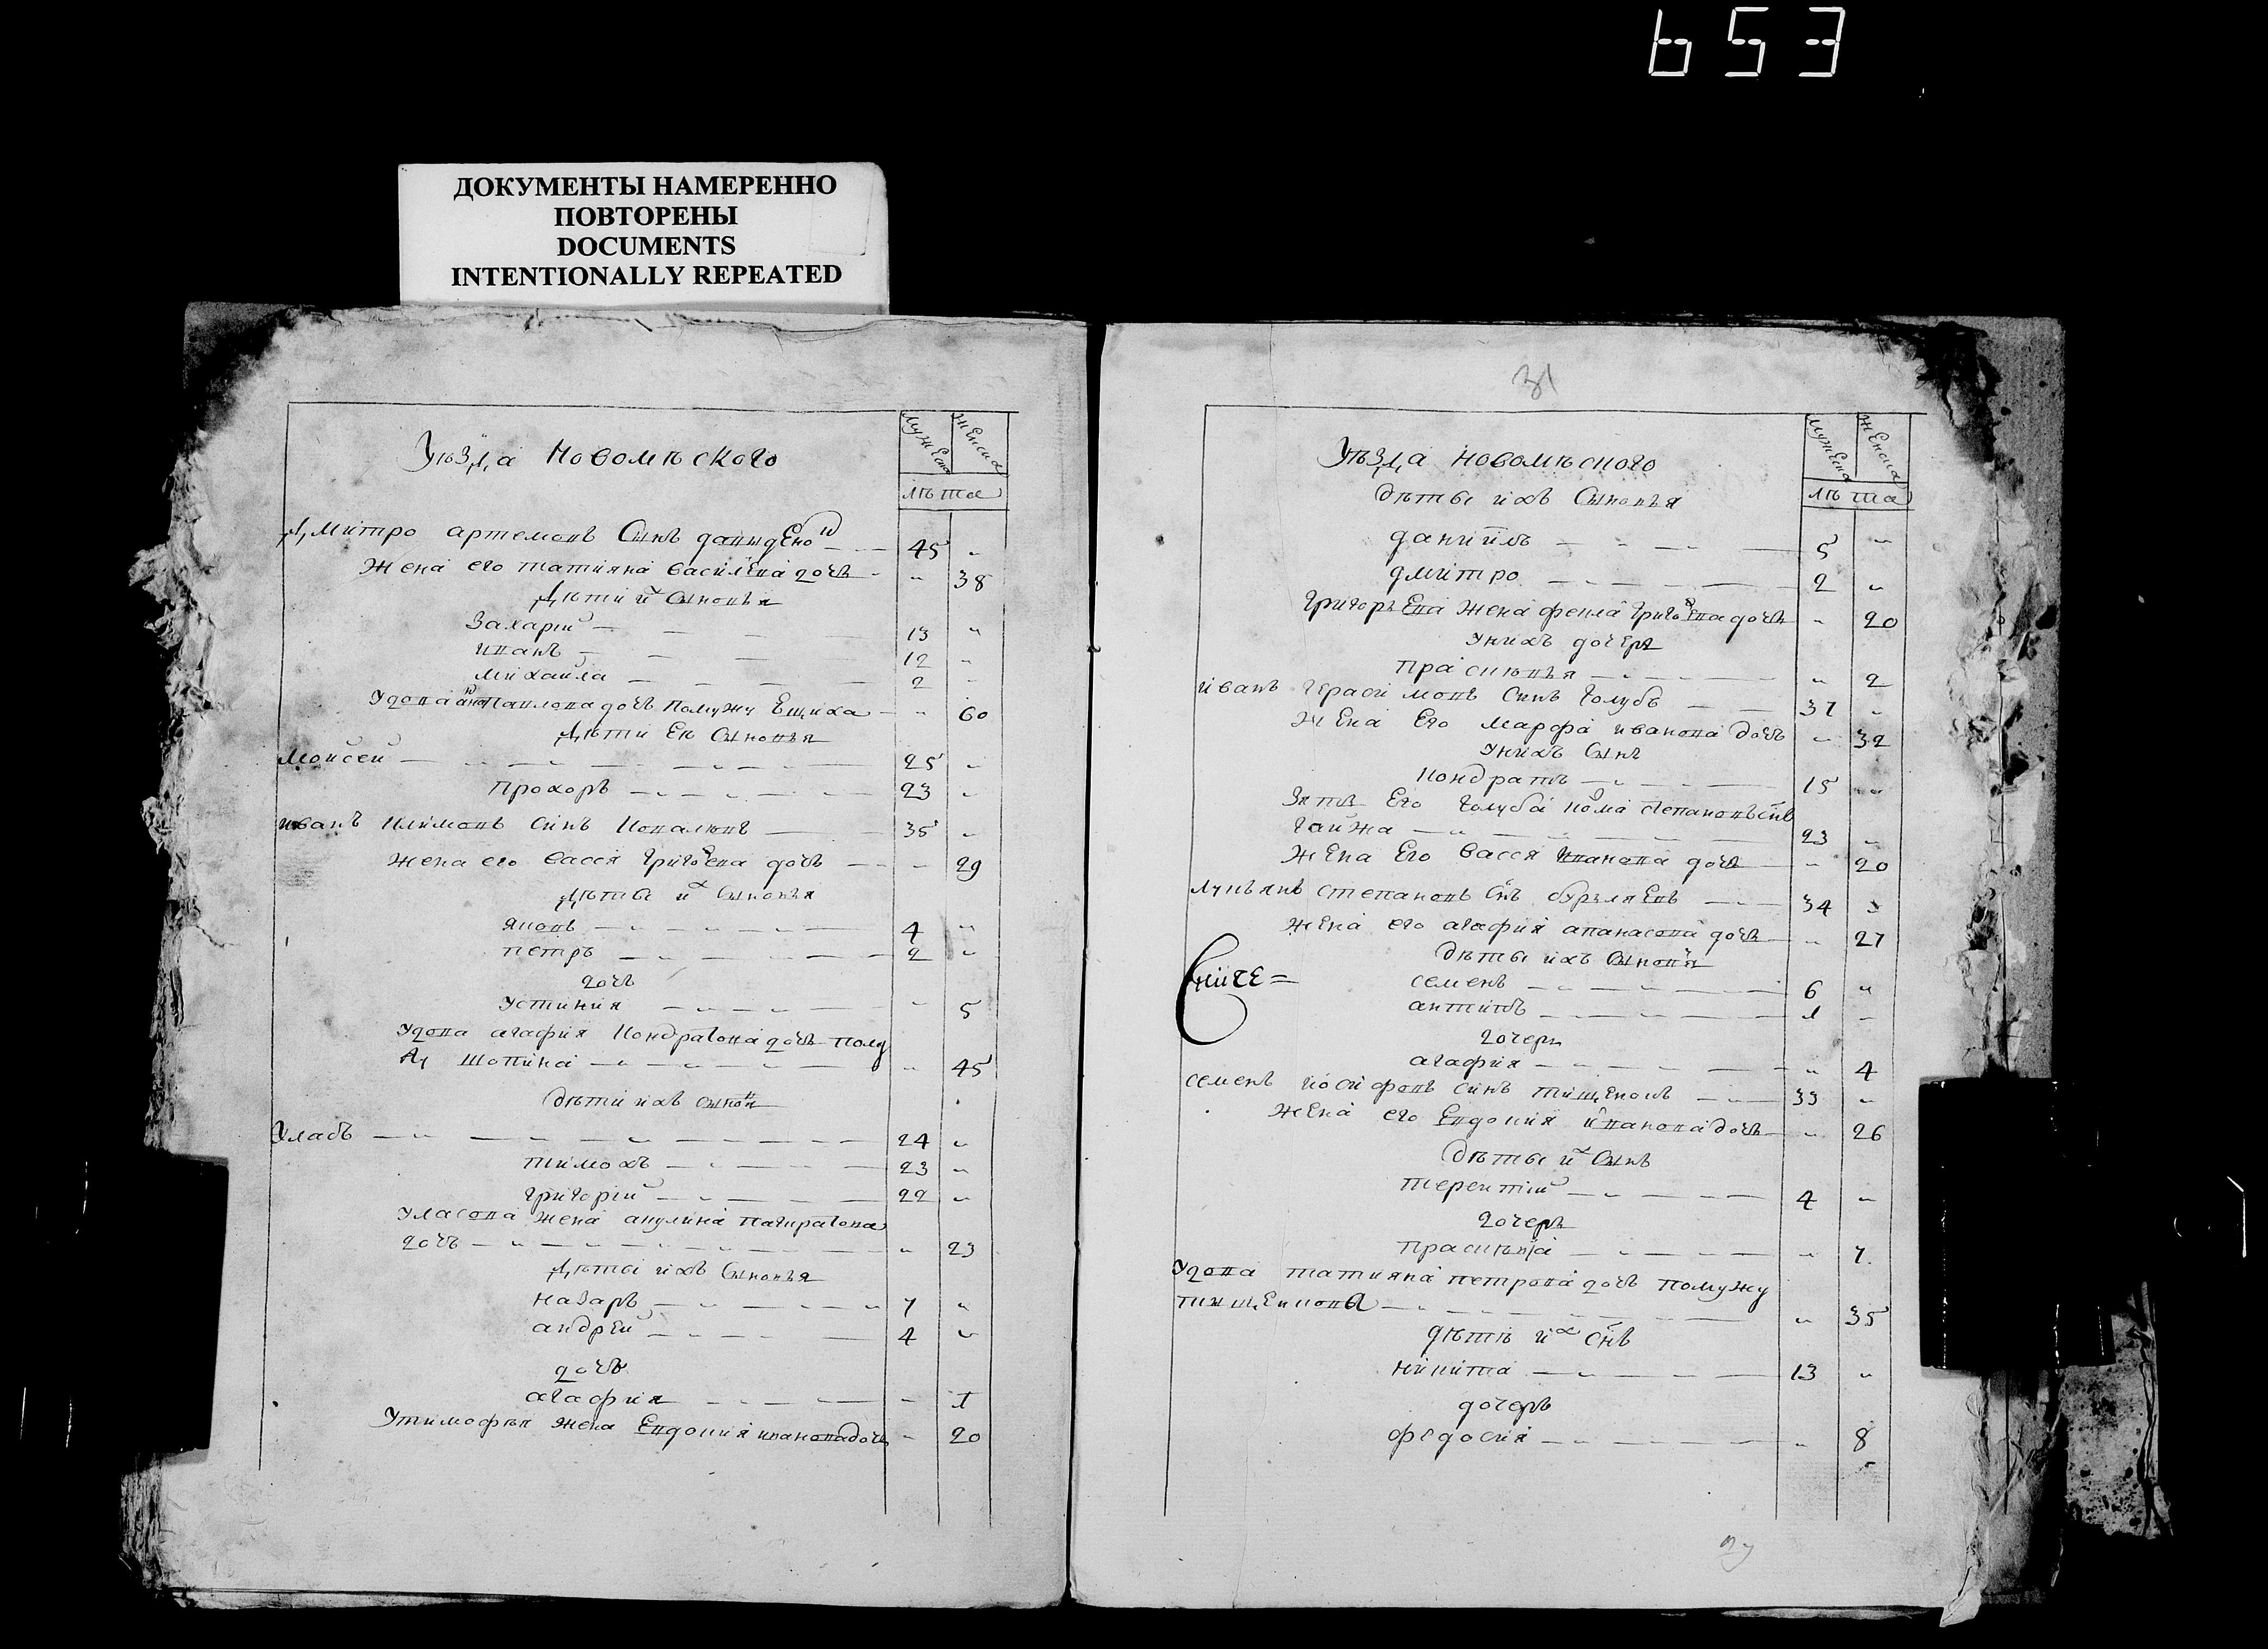 653
ДОКУМЕНТЫ НАМЕРЕННО
ПОВТОРЕНЫ
DOCUMENTS
INTENTIONALLY REPEATED
Уѣзда Новомѣского
мужеска женска
лѣта
Дмитро артемовъ Сынъ давыденко 45 „
Жена его татияна василева дочь „ 38
Дѣти их Сыновья
Захарий 13 „
иванъ 12 „
михайла 2 „
Удова анна павлова дочь помужу Ещиха „ 60
Дѣти Ея Сыновья
Мойсей 25 „
Прохоръ 23 „
иванъ Климовъ Синъ Ковалювъ 35 „
жена его васся григоева дочь „ 29
Дѣты их Сыновья
яковъ 4 „
петръ 2 „
дочь
устиния „ 5
Удова агафия Кондратова дочь
шопина „ 45
Дѣти ихъ сынов
Уласъ 24 „
тимохъ 23 „
григорий 22 „
Уласова жена акулина
дочь „ 23
Дѣты ихъ Сыновья
назаръ 7 „
андрей 4 „
дочь
агафия „ 1
Утимофѣя жена Евдокия иванова дочь „ 20
31
Уѣзда новомѣского
мужеска женска
лѣта
дѣты ихъ Сыновья
даниилъ 5 „
дмитро 2 „
григорьева жена фекла григоева дочь „ 20
унихъ дочеръ
праскювья „ 2
иванъ герасимовъ Синъ голубъ 37 „
жена Его марфа иванова дочь „ 32
унихъ Сынъ
кондратъ 15 „
Зять Его голуба степановъ снъ
гайжа 23 „
жена Его васся иванова дочь „ 20
лукьянъ степановъ Снъ 34 „
жена его агафия апанасова дочь „ 27
дѣты ихъ Сыновя
семенъ 6 „
антипъ 1 „
дочеръ
агафия „ 4
семенъ йосифовъ синъ тищенокъ 33 „
жена его Евдокия иванова дочь „ 26
дѣты их Сынъ
терентий 4 „
дочеръ
праскѣвiа „ 7
Удова татияна петрова дочь помужу
тищенкова „ 35
дѣтѣ их Снъ
никита 13 „
дочеръ
федосия „ 8